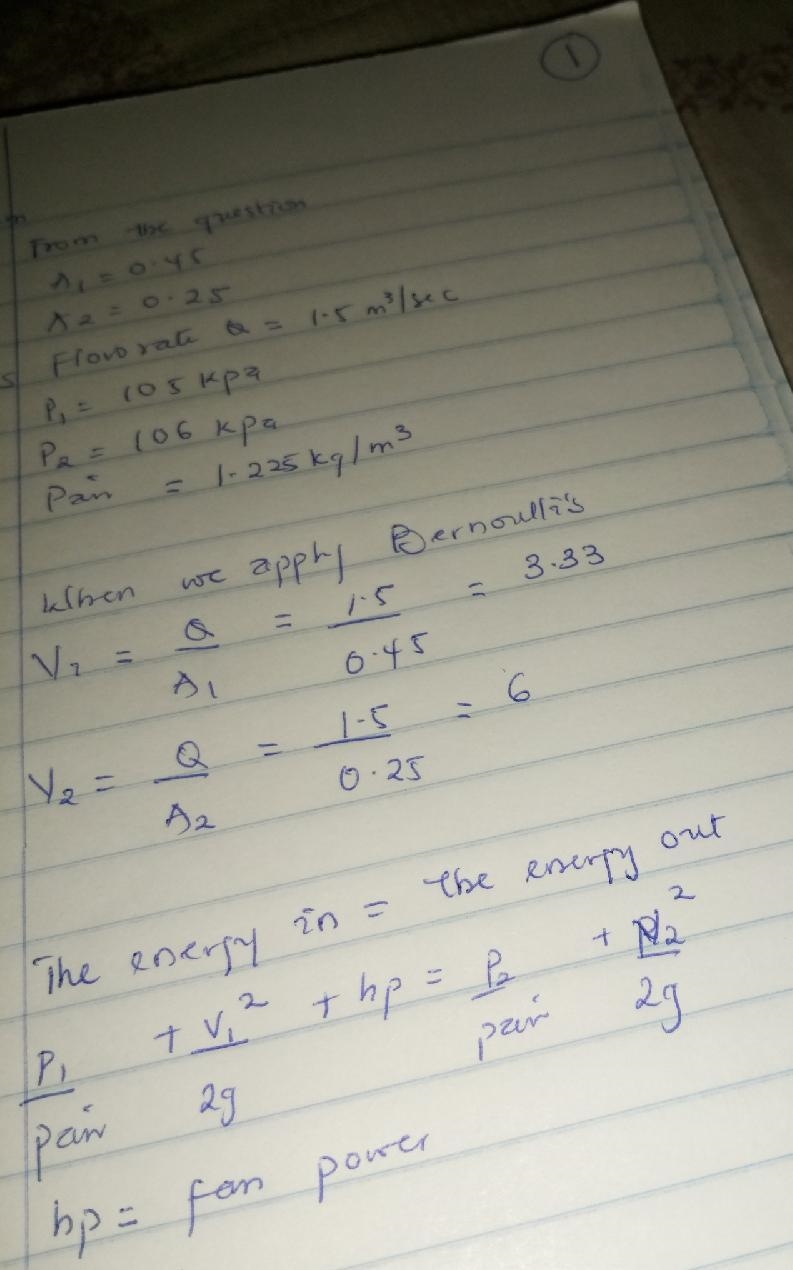 1
From the question
A1 = 0.45
A2 = 0.25
Flow rate Q = 1.5 m³/sec
P1 = 105 kpa
P2 = 106 kpa
Pair = 1.225 kg/m³
When we apply Bernoulli's
V1 = Q/A1 = 1.5/0.45 = 3.33
V2 = Q/A2 = 1.5/0.25 = 6
The energy in = the energy out
P1/pair + V1²/2g + hp = P2/pair + V2²/2g
hp = fan power